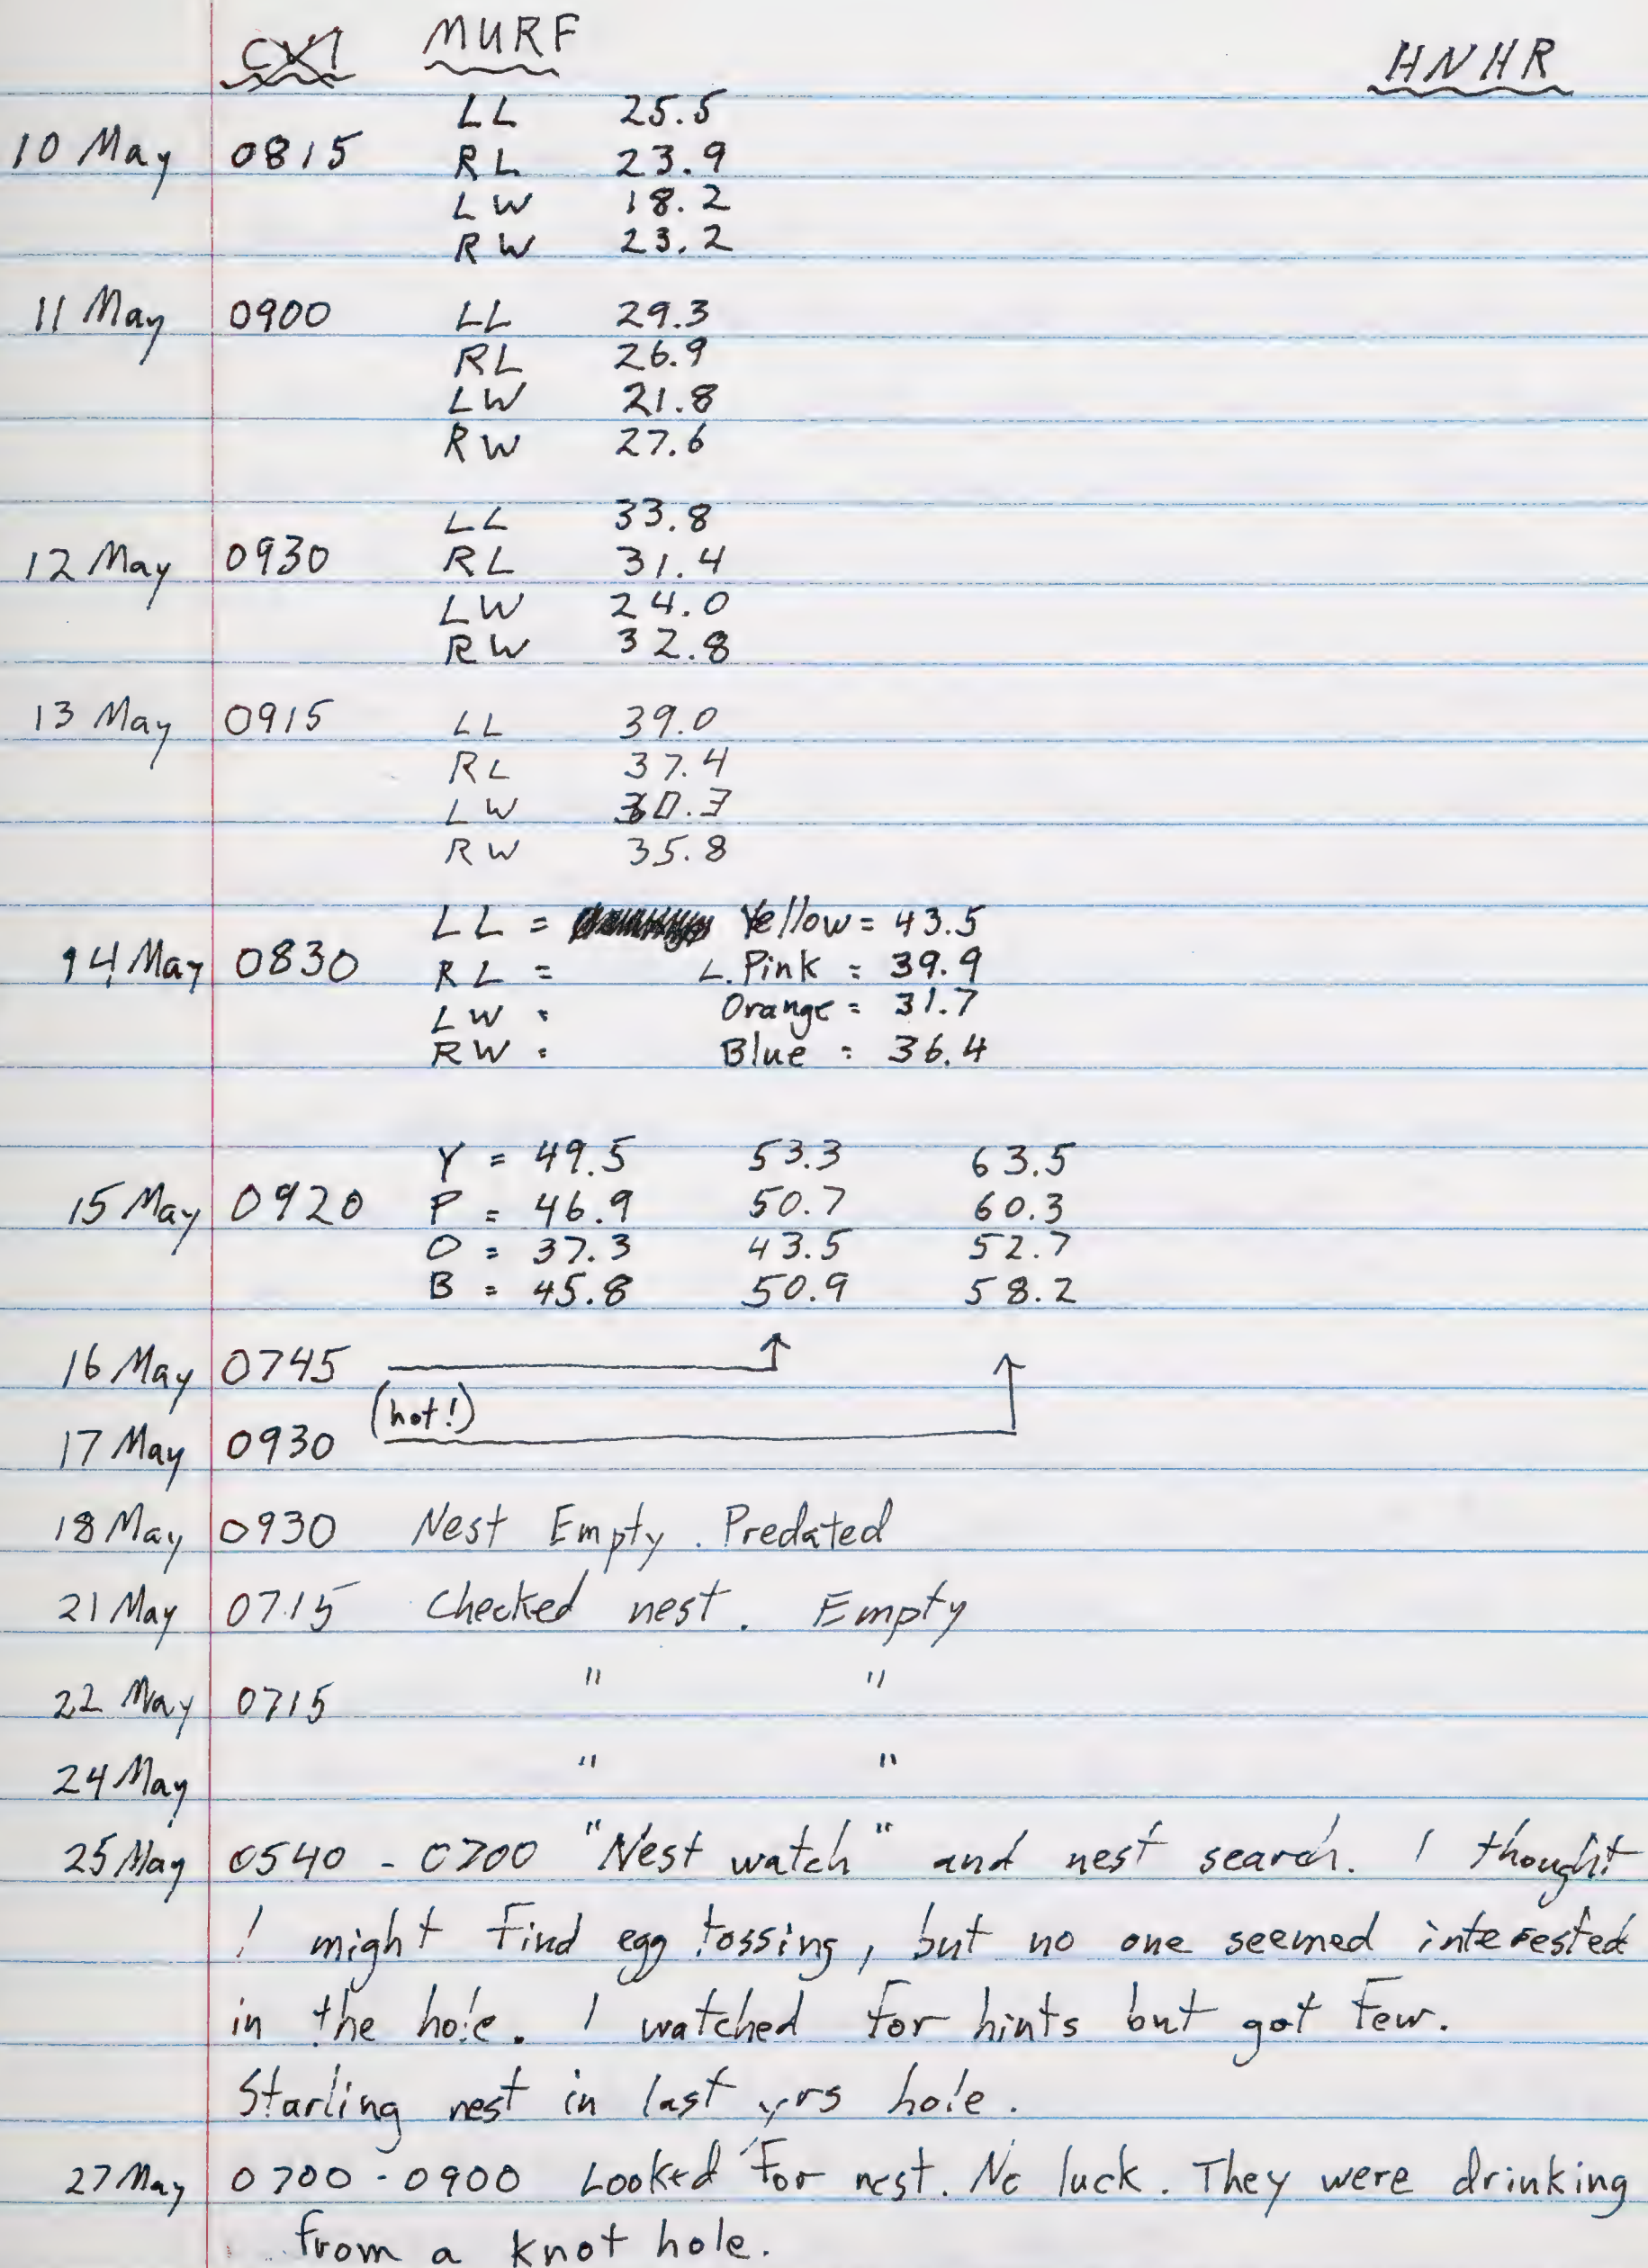 CV1 MURF HNHR
LL 25.5
10 May 0815 RL 23.9
LW 18.2
RW 23.2
11 May 0900 LL 29.3
RL 26.9
LW 21.8
RW 27.6
LL 33.8
12 May 0930 RL 31.4
LW 24.0
RW 32.8
13 May 0915 LL 39.0
RL 37.4
LW 30.3
RW 35.8
LL = Yellow = 43.5
14 May 0830 RL = L. Pink = 39.9
LW = Orange = 31.7
RW = Blue = 36.4
Y = 49.5 53.3 63.5
15 May 0920 P = 46.9 50.7 60.3
O = 37.3 43.5 52.7
B = 45.8 50.9 58.2
16 May 0745
(hot!)
17 May 0930
18 May 0930 Nest Empty. Predated
21 May 0715 Checked nest. Empty
22 May 0715 " "
24 May " "
25 May 0540 - 0700 "Nest watch" and nest search. I thought
I might find egg tossing, but no one seemed interested
in the hole. I watched for hints but got few.
Starling nest in last yrs hole.
27 May 0700 - 0900 Looked for nest. No luck. They were drinking
from a knot hole.